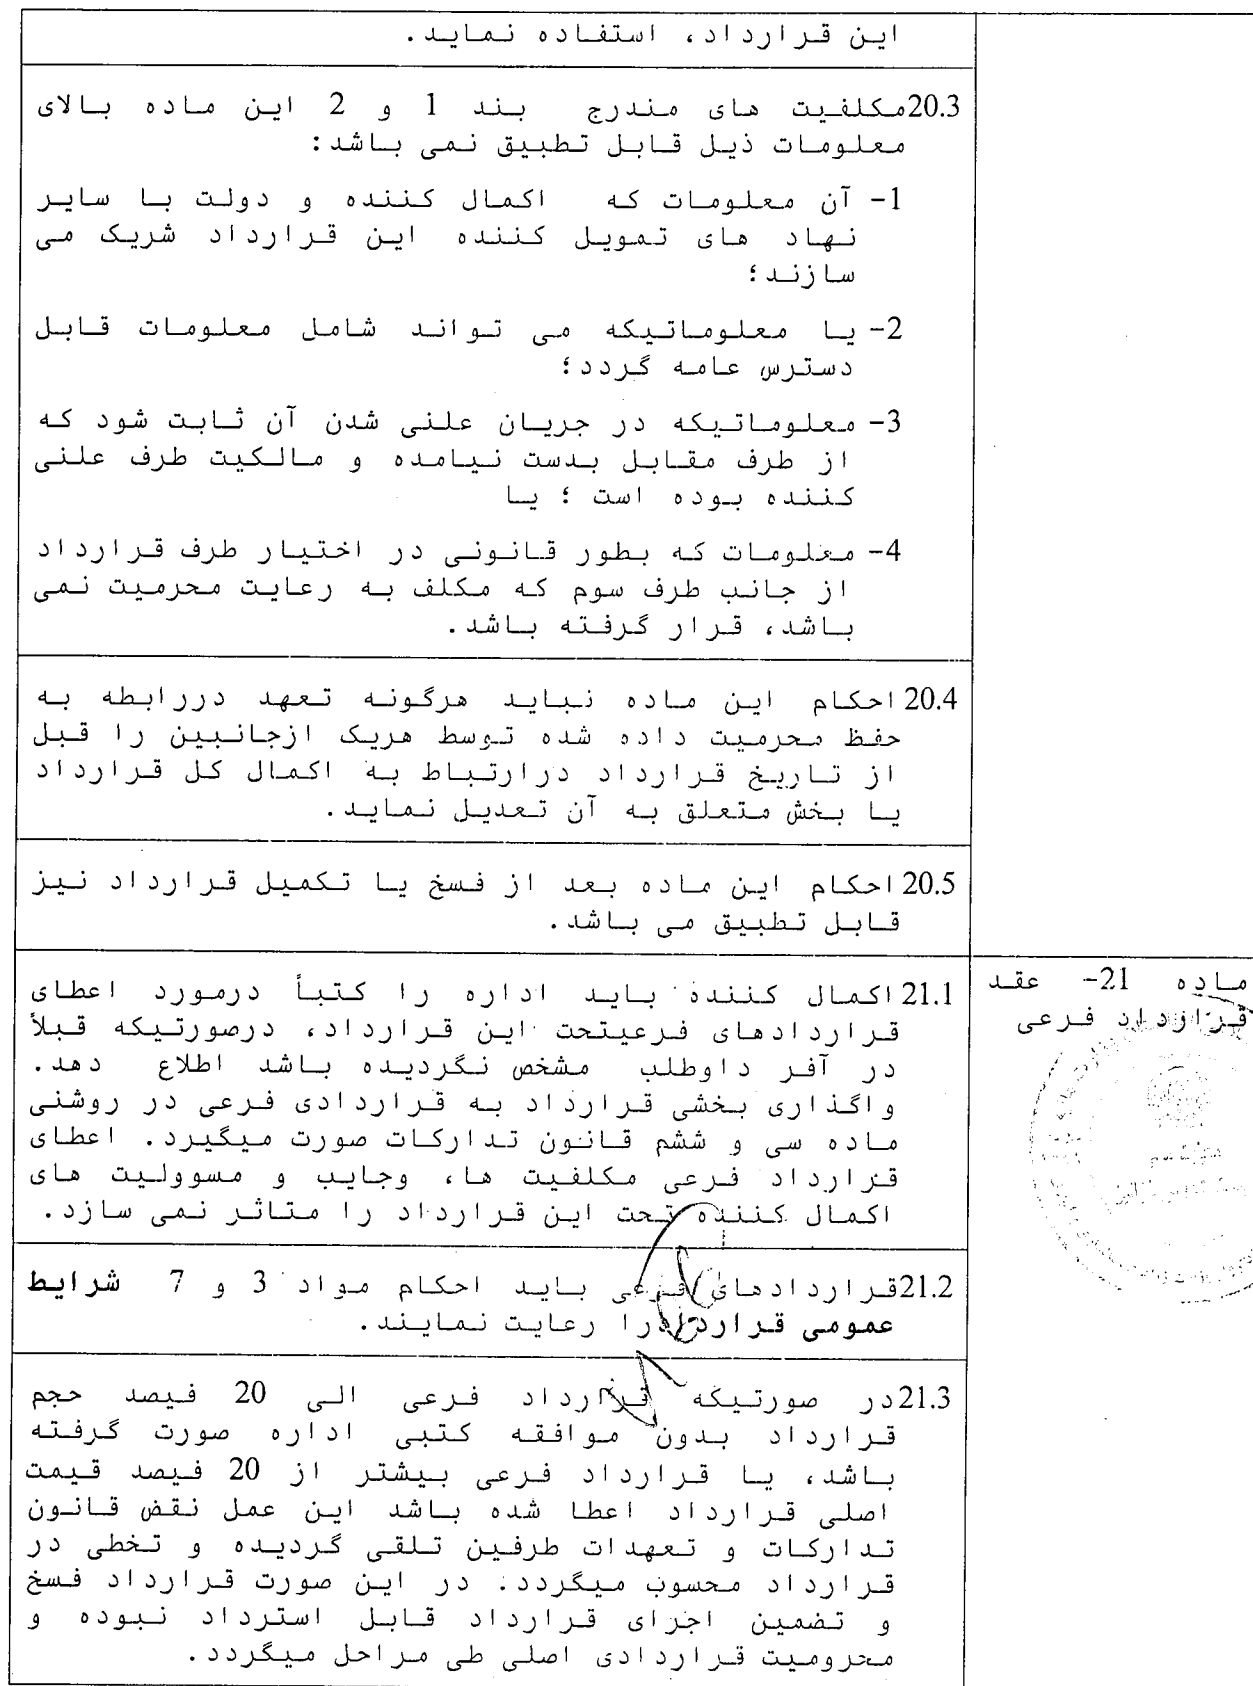 این قرارداد، استفاده نماید.
20.3مکلفیت های مندرج بند 1 و 2 این ماده بالای
معلومات ذیل قابل تطبیق نمی باشد:
1- آن معلومات که اکمال کننده و دولت با سایر
نهاد های تمویل کننده این قرارداد شریک می
سازند؛
2- یا معلوماتیکه می تواند شامل معلومات قابل
دسترس عامه گردد؛
3- معلوماتیکه در جریان علنی شدن آن ثابت شود که
از طرف مقابل بدست نیامده و مالکیت طرف علنی
کننده بوده است ؛ یا
4- معلومات که بطور قانونی در اختیار طرف قرارداد
از جانب طرف سوم که مکلف به رعایت محرمیت نمی
باشد، قرار گرفته باشد.
20.4 احکام این ماده نباید هرگونه تعهد دررابطه به
حفظ محرمیت داده شده توسط هریک ازجانبین را قبل
از تاریخ قرارداد درارتباط به اکمال کل قرارداد
یا بخش متعلق به آن تعدیل نماید.
20.5 احکام این ماده بعد از فسخ یا تکمیل قرارداد نیز
قابل تطبیق می باشد.
ماده 21- عقد
قرارداد فرعی
21.1 اکمال کننده باید اداره را کتباً درمورد اعطای
قراردادهای فرعیتحت این قرارداد، درصورتیکه قبلاً
در آفر داوطلب مشخص نگردیده باشد اطلاع دهد.
واگذاری بخشی قرارداد به قراردادی فرعی در روشنی
ماده سی و ششم قانون تدارکات صورت میگیرد. اعطای
قرارداد فرعی مکلفیت ها، وجایب و مسوولیت های
اکمال کننده تحت این قرارداد را متاثر نمی سازد.
21.2قراردادهای فرعی باید احکام مواد 3 و 7 شرایط
عمومی قرارداد را رعایت نمایند.
21.3در صورتیکه قرارداد فرعی الی 20 فیصد حجم
قرارداد بدون موافقه کتبی اداره صورت گرفته
باشد، یا قرارداد فرعی بیشتر از 20 فیصد قیمت
اصلی قرارداد اعطا شده باشد این عمل نقض قانون
تدارکات و تعهدات طرفین تلقی گردیده و تخطی در
قرارداد محسوب میگردد. در این صورت قرارداد فسخ
و تضمین اجرای قرارداد قابل استرداد نبوده و
محرومیت قراردادی اصلی طی مراحل میگردد.